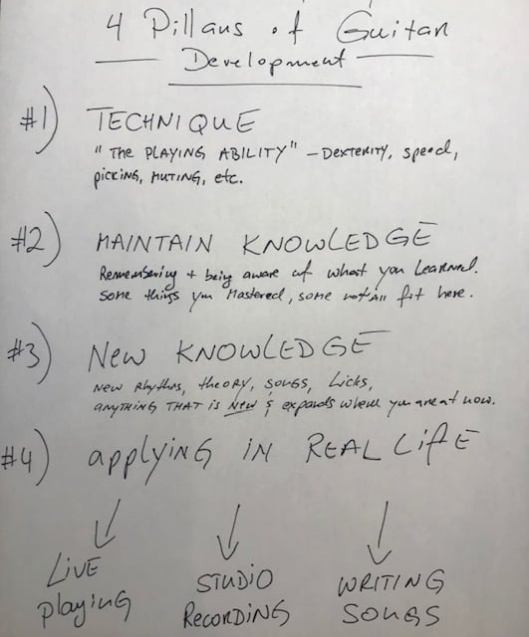 4 Pillars of Guitar
Development
#1) TECHNIQUE
"The PLAYING ABILITY" - DEXTERITY, speed,
picking, MUTING, etc.
#2) MAINTAIN KNOWLEDGE
Remembering + being aware of what you Learned.
Some things you Mastered, some not. All fit here.
#3) New KNOWLEDGE
New Rhythms, theory, SONGS, Licks,
ANYTHING THAT is NEW & expands where you are at now.
#4) applying iN REAL Life
Live
playing
STUDIO
RECORDING
WRITING
SONGS